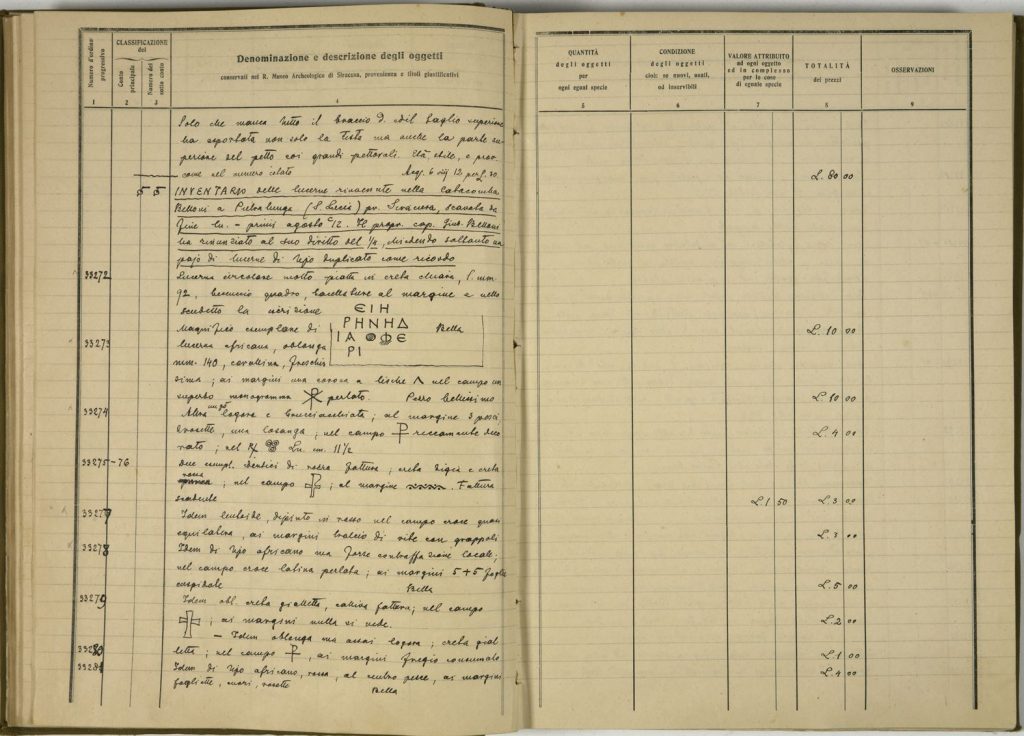 Numero d'ordine progressivo
CLASSIFICAZIONE del
Conto principale
Numero del sotto conto
Denominazione e descrizione degli oggetti
conservati nel R. Museo Archeologico di Siracusa, provenienza e titoli giustificativi
1 2 3 4
Solo che manca tutto il braccio d. ed il taglio superiore
ha asportata non solo la testa ma anche la parte su-
periore del petto coi grandi pettorali. Età, stile, e prov.
come nel numero citato Acq. 6 12 per L. 80
5 5 INVENTARIO delle lucerne rinvenute nella Catacomba
Bettoni a Pietralunga (S. Lucia) pr. Siracusa, scavata da
fine lu. - primi agosto 12. Il propr. cap. Gius. Bettoni
ha rinunziato al suo diritto del 1/4, chiedendo soltanto un
pajo di lucerne di tipo duplicato come ricordo
33272 Lucerna circolare molto piatta in creta chiara, l. mm.
92, beccuccio quadro, al margine e nello
scudetto la iscrizione
ΕΙΗ
ΡΗΝΗΔ
ΙΑ ΦΕ
ΡΙ
Bella
33273 Magnifico esemplare di
lucerna africana, oblunga
mm. 140, corallina, freschis
sima; ai margini una corona a lische Λ nel campo un
superbo monogramma ☧ perlato. Pezzo bellissimo
33274 Altra logora e bruciacchiata; al margine 3
rosette, una losanga; nel campo riccamente deco
rato; nel Lu. cm. 11½
33275-76 Due esempl. identici di rozza fattura; creta bigia e creta
rossa; nel campo; al margine. Fattura
scadente
33277 Idem lenticolare, dipinto in rosso nel campo croce quasi
equilatera, ai margini tralcio di vite con grappoli
33278 Idem di tipo africano ma forse contraffazione locale;
nel campo croce latina perlata; ai margini 5+5 foglie
cuspidate Bella
33279 Idem obl. creta gialletta, cattiva fattura; nel campo
; ai margini nulla si vede.
33280 – Idem oblunga ma assai logora; creta gial
letta; nel campo, ai margini fregio consumato
33281 Idem di tipo africano, rossa, al centro pesce, ai margini
fogliette, cuori, rosette
Bella
QUANTITÀ degli oggetti per ogni egual specie
CONDIZIONE degli oggetti cioè: se nuovi, usati, od inservibili
VALORE ATTRIBUITO ad ogni oggetto ed in complesso per le cose di eguale specie
TOTALITÀ dei prezzi
OSSERVAZIONI
5 6 7 8 9
L. 80 00
L. 10 00
L. 10 00
L. 4 00
L. 1 50 L. 3 00
L. 3 00
L. 5 00
L. 2 00
L. 1 00
L. 4 00